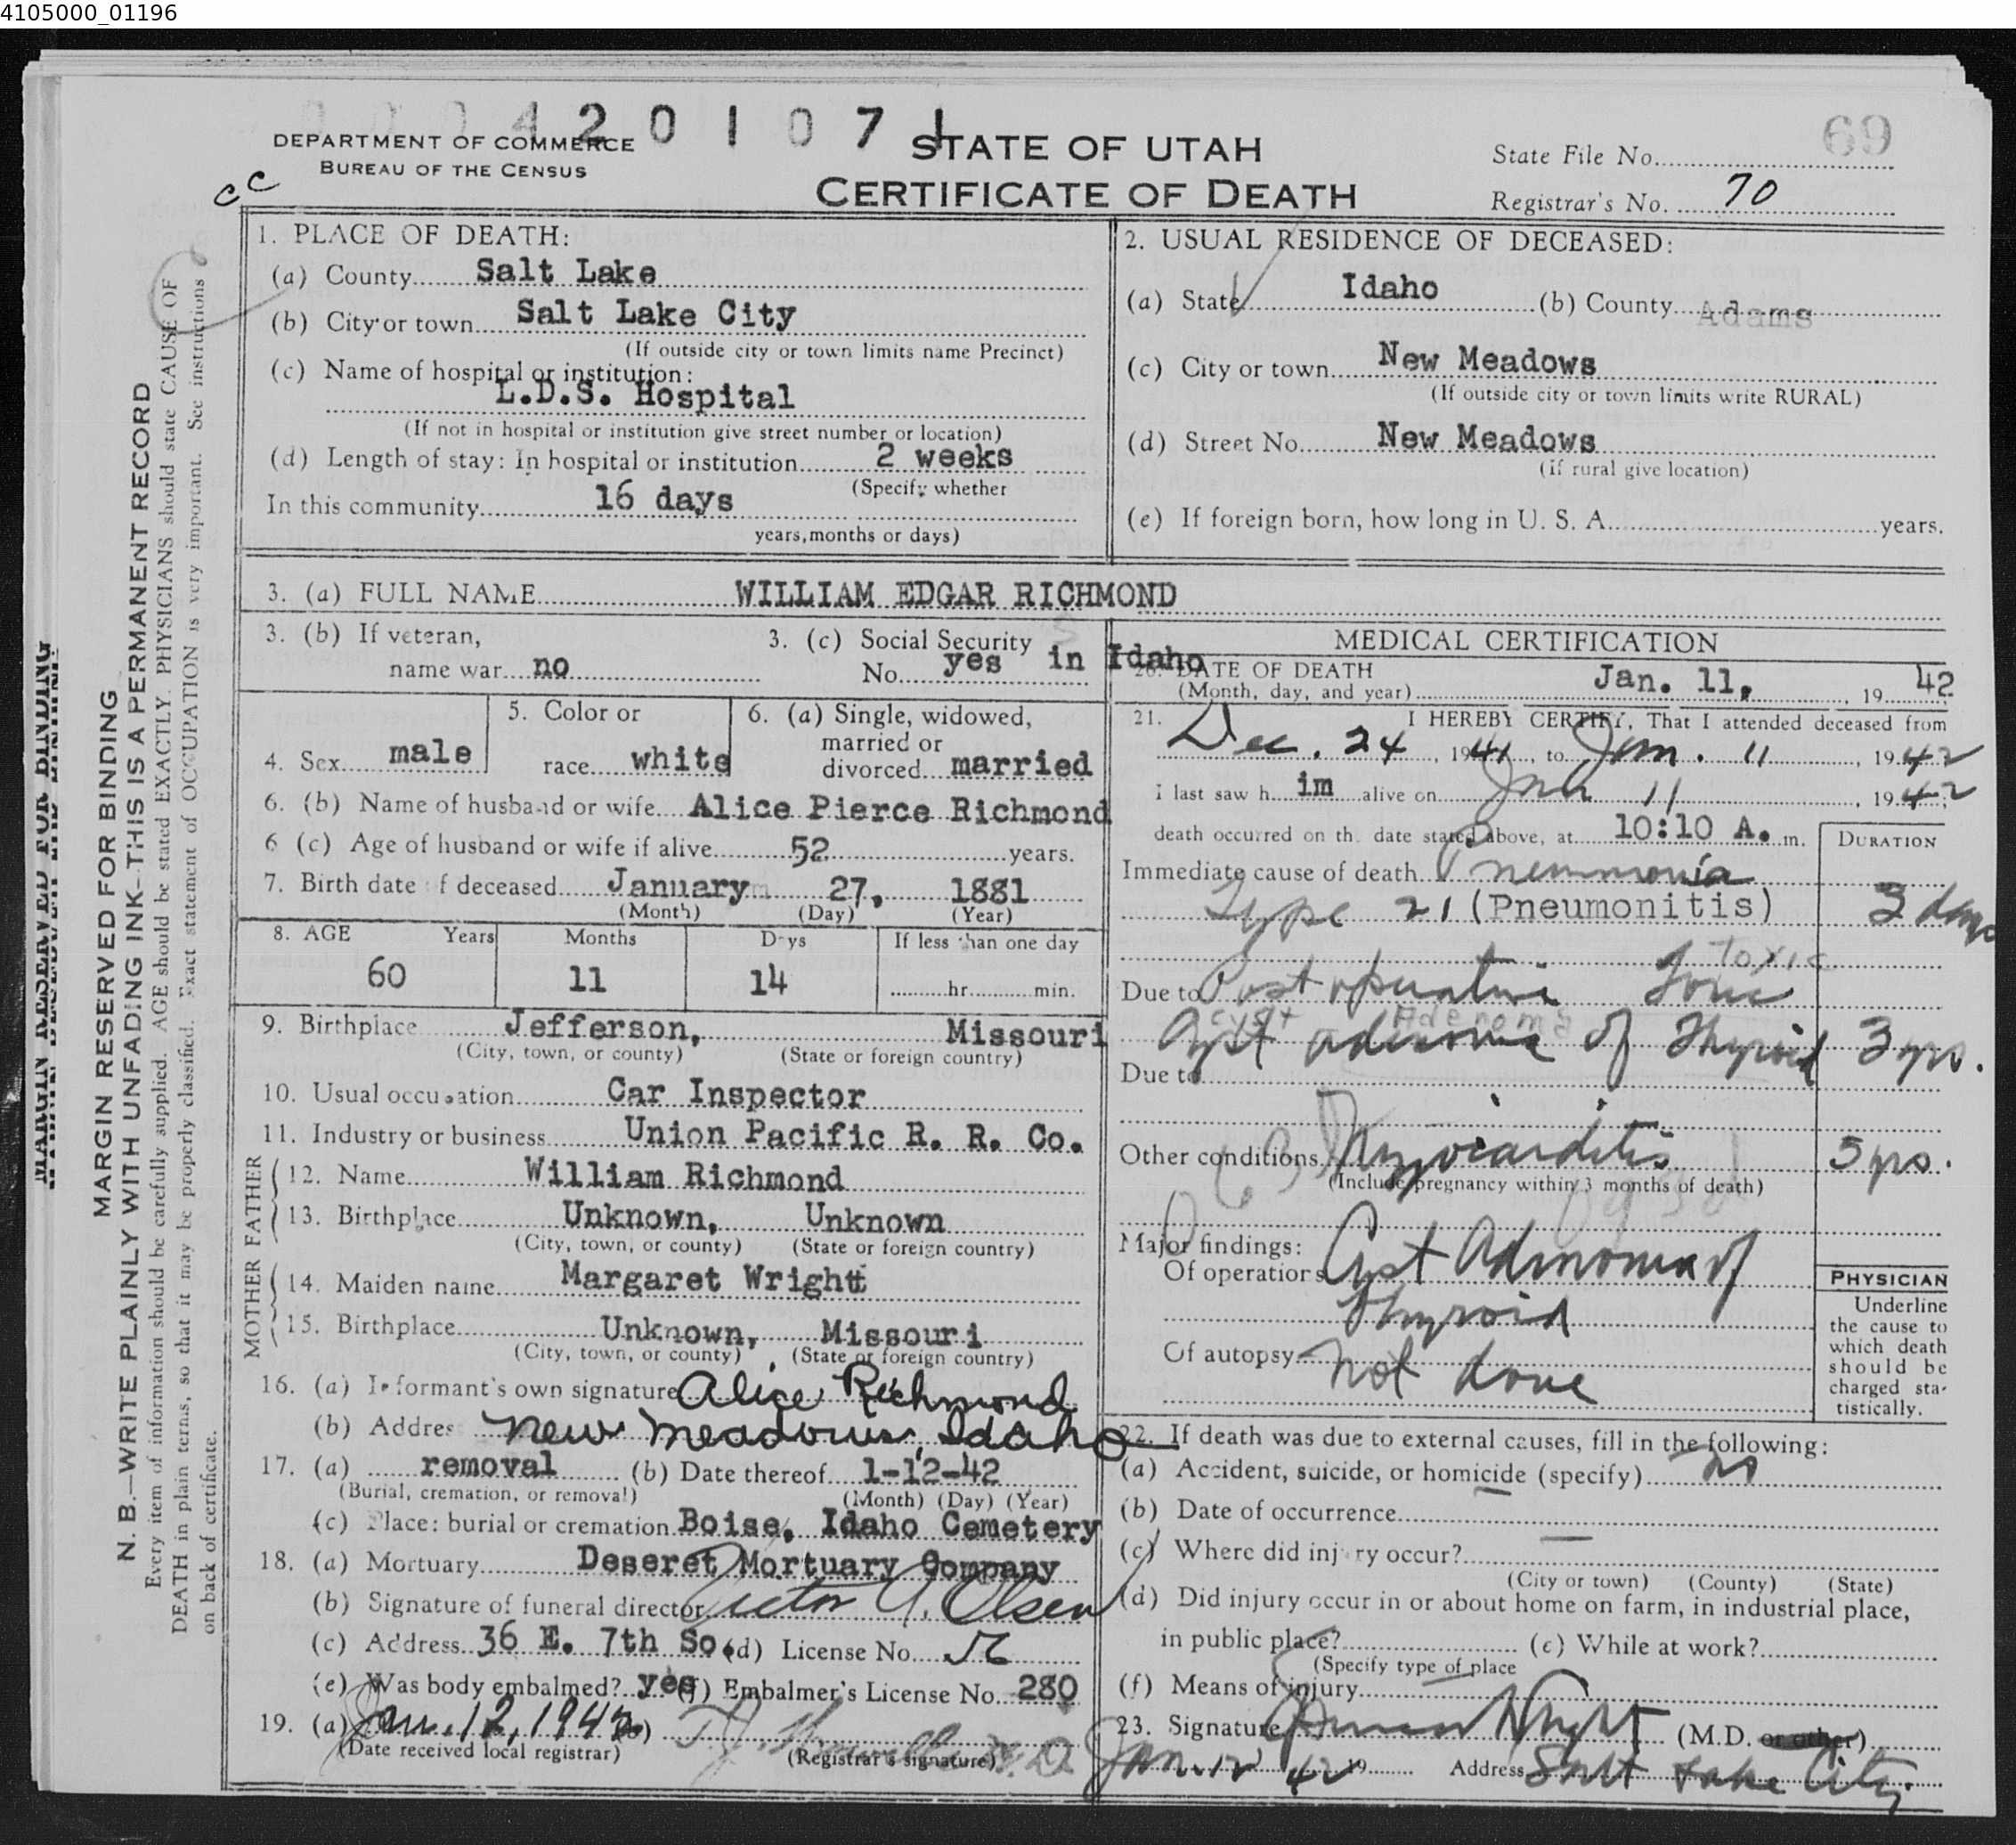 4105000_01196
4 2 0 1 0 7 1
DEPARTMENT OF COMMERCE
BUREAU OF THE CENSUS
STATE OF UTAH
CERTIFICATE OF DEATH
69
State File No.
Registrar's No. 70
cc
MARGIN RESERVED FOR BINDING
MARGIN RESERVED FOR BINDING
N. B.—WRITE PLAINLY WITH UNFADING INK—THIS IS A PERMANENT RECORD
Every item of information should be carefully supplied. AGE should be stated EXACTLY. PHYSICIANS should state CAUSE OF
DEATH in plain terms, so that it may be properly classified. Exact statement of OCCUPATION is very important. See instructions
on back of certificate.
1. PLACE OF DEATH:
(a) County Salt Lake
(b) City or town Salt Lake City
(If outside city or town limits name Precinct)
(c) Name of hospital or institution:
L.D.S. Hospital
(If not in hospital or institution give street number or location)
(d) Length of stay: In hospital or institution 2 weeks
(Specify whether
In this community 16 days
years, months or days)
2. USUAL RESIDENCE OF DECEASED:
(a) State Idaho (b) County Adams
(c) City or town New Meadows
(If outside city or town limits write RURAL)
(d) Street No. New Meadows
(if rural give location)
(e) If foreign born, how long in U. S. A. years.
3. (a) FULL NAME WILLIAM EDGAR RICHMOND
3. (b) If veteran,
name war no
3. (c) Social Security
No. yes in Idaho
4. Sex male
5. Color or
race white
6. (a) Single, widowed,
married or
divorced married
6. (b) Name of husband or wife Alice Pierce Richmond
6 (c) Age of husband or wife if alive 52 years.
7. Birth date of deceased January 27, 1881
(Month) (Day) (Year)
8. AGE Years Months Days If less than one day
60 11 14 hr. min.
9. Birthplace Jefferson, Missouri
(City, town, or county) (State or foreign country)
10. Usual occupation Car Inspector
11. Industry or business Union Pacific R. R. Co.
FATHER
12. Name William Richmond
13. Birthplace Unknown, Unknown
(City, town, or county) (State or foreign country)
MOTHER
14. Maiden name Margaret Wright
15. Birthplace Unknown, Missouri
(City, town, or county) (State or foreign country)
16. (a) Informant's own signature Alice Richmond
(b) Address New Meadows, Idaho
17. (a) removal (b) Date thereof 1-12-42
(Burial, cremation, or removal) (Month) (Day) (Year)
(c) Place: burial or cremation Boise, Idaho Cemetery
18. (a) Mortuary Deseret Mortuary Company
(b) Signature of funeral director Victor A. Olsen
(c) Address 36 E. 7th So. (d) License No. 56
(e) Was body embalmed? yes (f) Embalmer's License No. 280
19. (a) Jan. 12, 1942 (b)
(Date received local registrar) (Registrar's signature)
MEDICAL CERTIFICATION
20. DATE OF DEATH
(Month, day, and year) Jan. 11, 19 42
21. I HEREBY CERTIFY, That I attended deceased from
Dec. 24, 1941, to Jan. 11, 1942
I last saw him alive on Jan 11, 1942;
death occurred on the date stated above, at 10:10 A. m.
DURATION
Immediate cause of death Pneumonia
Type 21 (Pneumonitis) 3 days
toxic
Due to Post operative Toxic
cyst Adenoma
Cyst adenoma of Thyroid 3 yrs.
Due to
Other conditions Myocarditis 5 yrs.
(Include pregnancy within 3 months of death)
Major findings:
Of operations Cyst Adenoma of
Thyroid
Of autopsy not done
PHYSICIAN
Underline
the cause to
which death
should be
charged sta-
tistically.
22. If death was due to external causes, fill in the following:
(a) Accident, suicide, or homicide (specify) no
(b) Date of occurrence
(c) Where did injury occur?
(City or town) (County) (State)
(d) Did injury occur in or about home on farm, in industrial place,
in public place? (e) While at work?
(Specify type of place
(f) Means of injury
23. Signature Wright (M.D. or other)
Jan. 12 42 19 Address Salt Lake City.